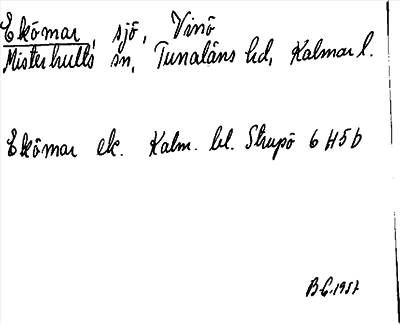 Ekömar, sjö, Vinö
Misterhults sn, Tunaläns hd, Kalmar l.
Ekömar ek. Kalm. bl. Strupö 6 H5b
B.G. 1957